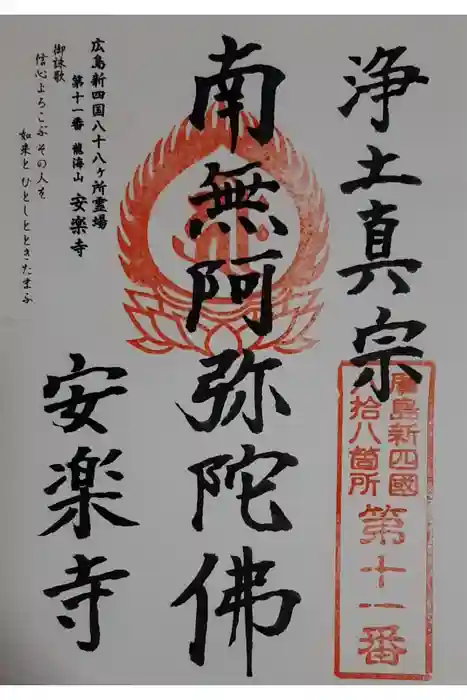 浄土真宗
廣島新四國
八拾八箇所
第十一番
南無阿弥陀佛
広島新四国八十八ヶ所霊場
第十一番 龍海山 安楽寺
御詠歌
信心よろこぶ その人を
如来と ひとしと ときたまふ
安楽寺